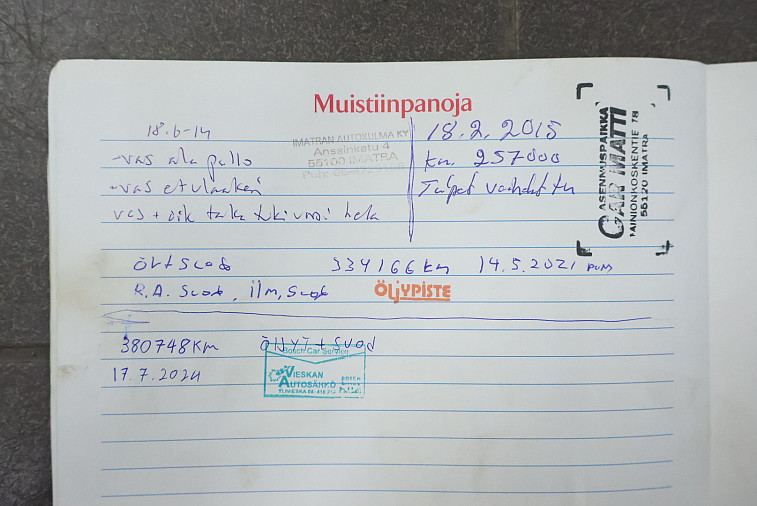 Muistiinpanoja
18.6-14
IMATRAN AUTOKULMA KY
Anssinkatu 4
55100 IMATRA
-vas ala pallo
-vas etulaakeri
vas + oik taka tukivarsi hela
18.2.2015
km. 257000
Talpat vaihdettu
ASENNUSPAIKKA
CAR MATTI
VAINIONKOSKENTIE 78
55120 IMATRA
334166 km 14.5.2021
R.A. Suod, ilm, Suod
ÖLJYPISTE
380748KM ÖLJYT + SUOD
17.7.2024
Bosch Car Service
VIESKAN
AUTOSÄHKÖ
BOSCH